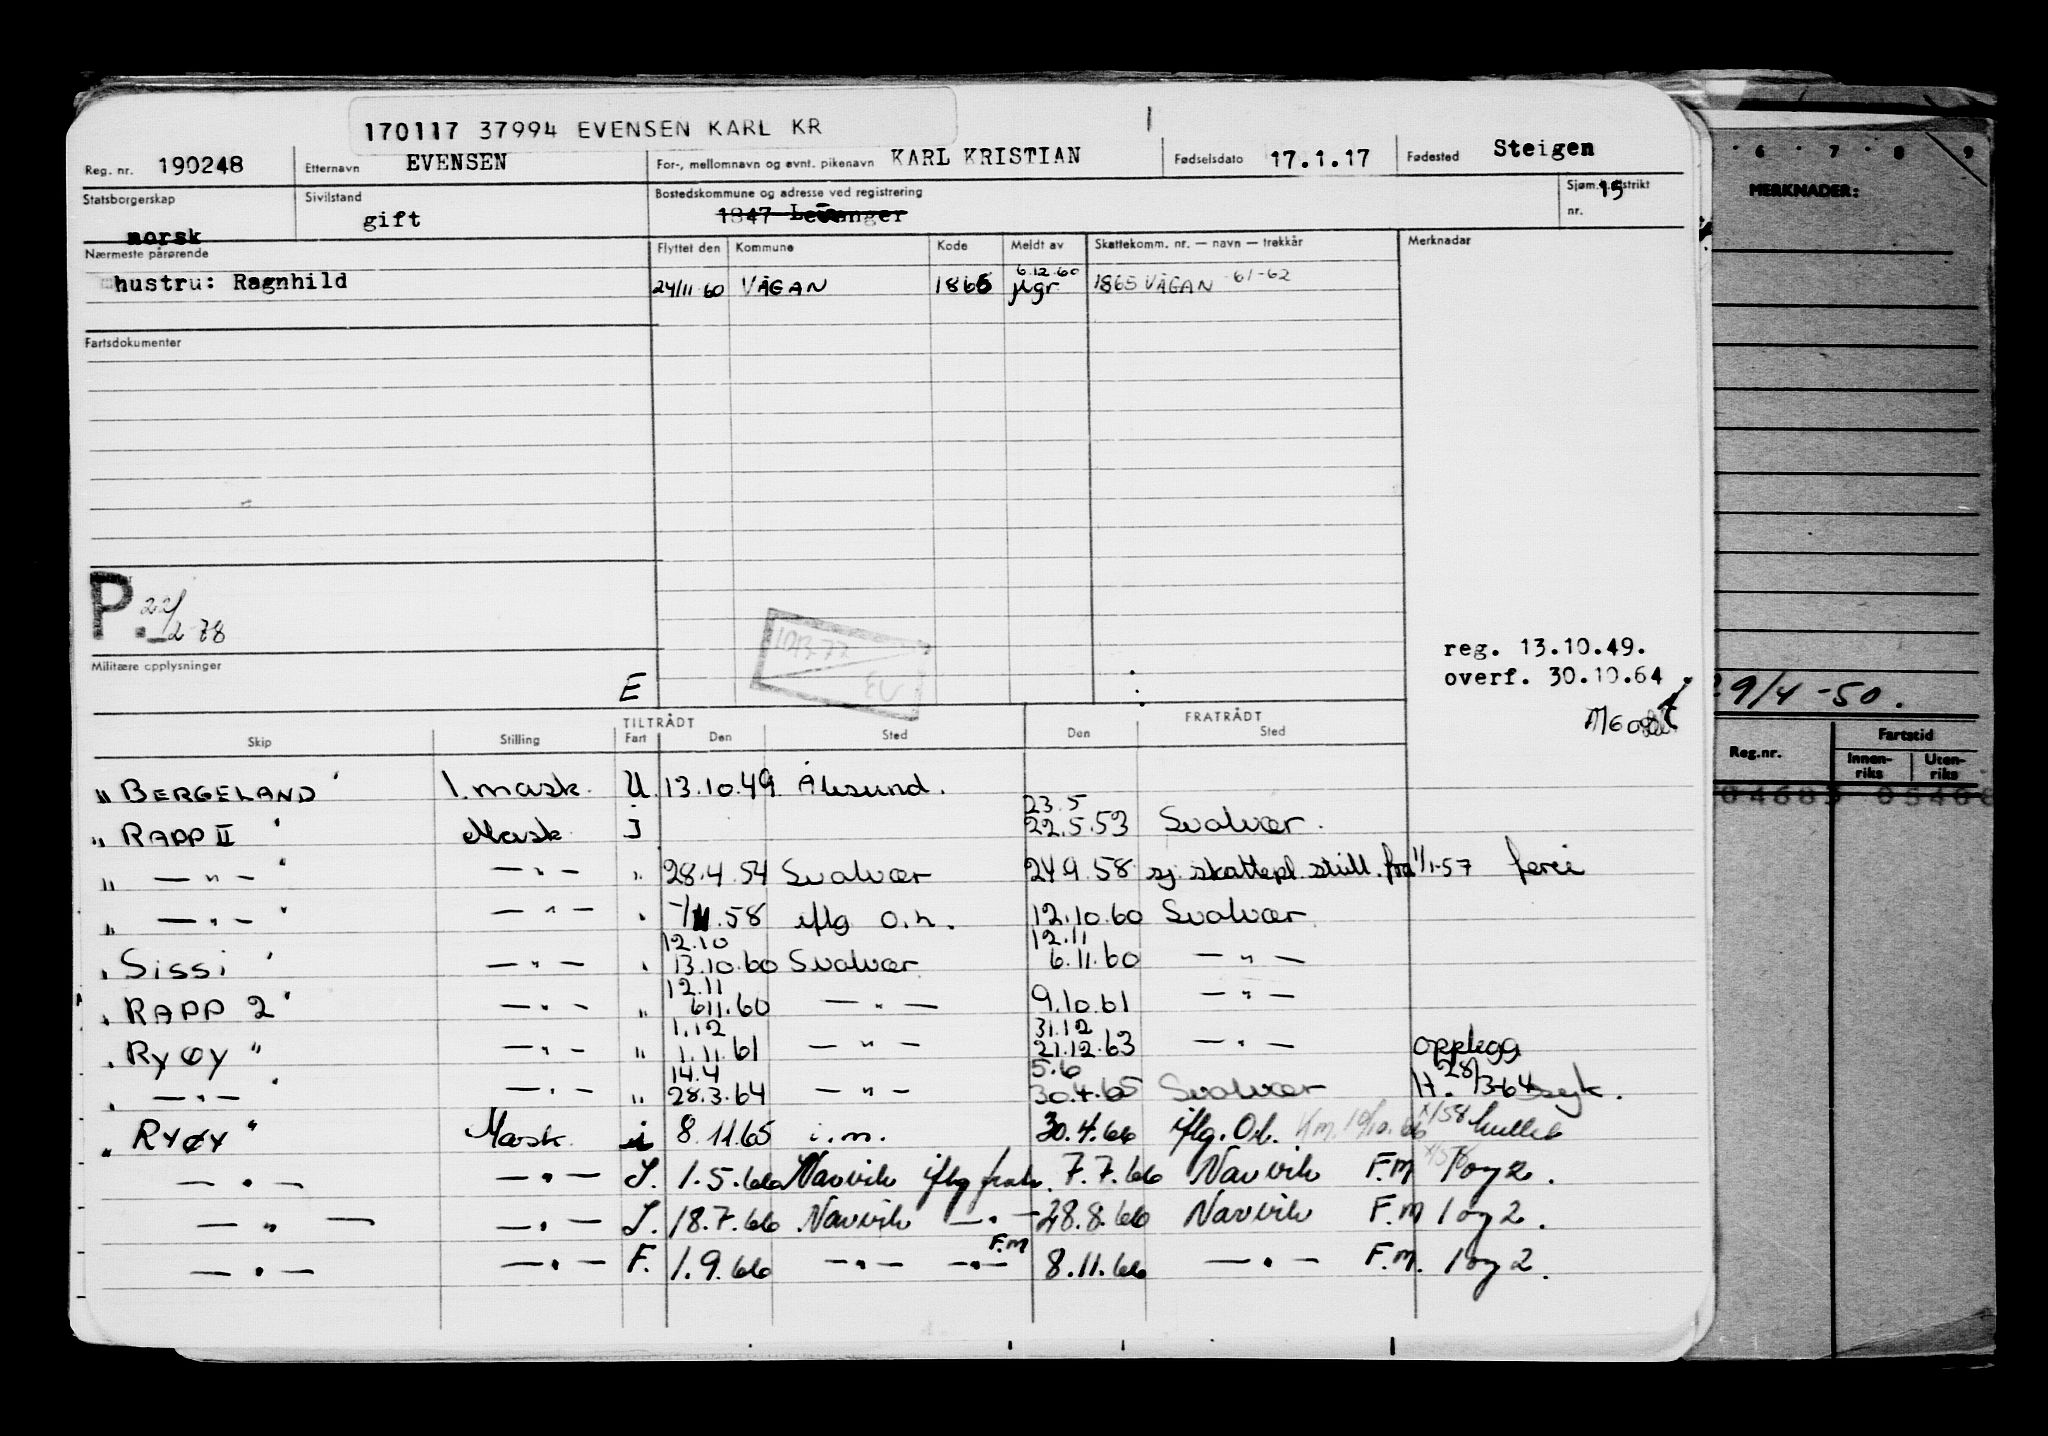 170117 37994 EVENSEN KARL KR
Reg. nr. 190248 Etternavn EVENSEN For-, mellomnavn og evnt. pikenavn KARL KRISTIAN Fødselsdato 17.1.17 Fødested Steigen
Statsborgerskap norsk Sivilstand gift Bostedskommune og adresse ved registrering 1847 Levanger Sjøm. distrikt nr. 15
Nærmeste pårørende Flyttet den Kommune Kode Meldt av Skattekomm. nr. — navn — trekkår Merknader
hustru: Ragnhild 24/11 60 VÅGAN 1865 6.12.60 Mgr 1865 VÅGAN 61-62
Fartsdokumenter
P. 22/2-78
Militære opplysninger
E
reg. 13.10.49.
overf. 30.10.64
TILTRÅDT FRATRÅDT
Skip Stilling Fart Den Sted Den Sted
" BERGELAND " 1. mask. U. 13.10.49 Ålesund.
" RAPP II " Mask I 23.5 22.5.53 Svolvær.
" — " — " — " — " 28.4.54 Svolvær 24.9.58 sj. skattepl. still. fra 1/1-57 ferie
" — " — " — " — " -/11.58 iflg o.h. 12.10.60 Svolvær
" Sissi " — " — " 12.10 13.10.60 Svolvær 12.11 6.11.60 — " —
" RAPP 2 " — " — " 12.11 6.11.60 — " — 9.10.61 — " —
" Ryøy " — " — " 1.12 1.11.61 — " — 31.12 21.12.63 — " — opplegg
" — " — " — " — " 14.4 28.3.64 — " — 5.6 30.4.65 Svolvær H. 28/3-64 syk.
" RYØY " Mask. i 8.11.65 i.m. 30.4.66 iflg. O.l.
— " — — " — I. 1.5.66 Narvik iflg frakr. 7.7.66 Narvik F.M 1 og 2.
— " — — " — I. 18.7.66 Narvik — " — 28.8.66 Narvik F.M 1 og 2.
— " — — " — F. 1.9.66 — " — — " — F.M 8.11.66 — " — F.M. 1 og 2.
6 7 8 9
MERKNADER:
29/4 -50.
Reg.nr. Fartstid
Innen-riks Uten-riks